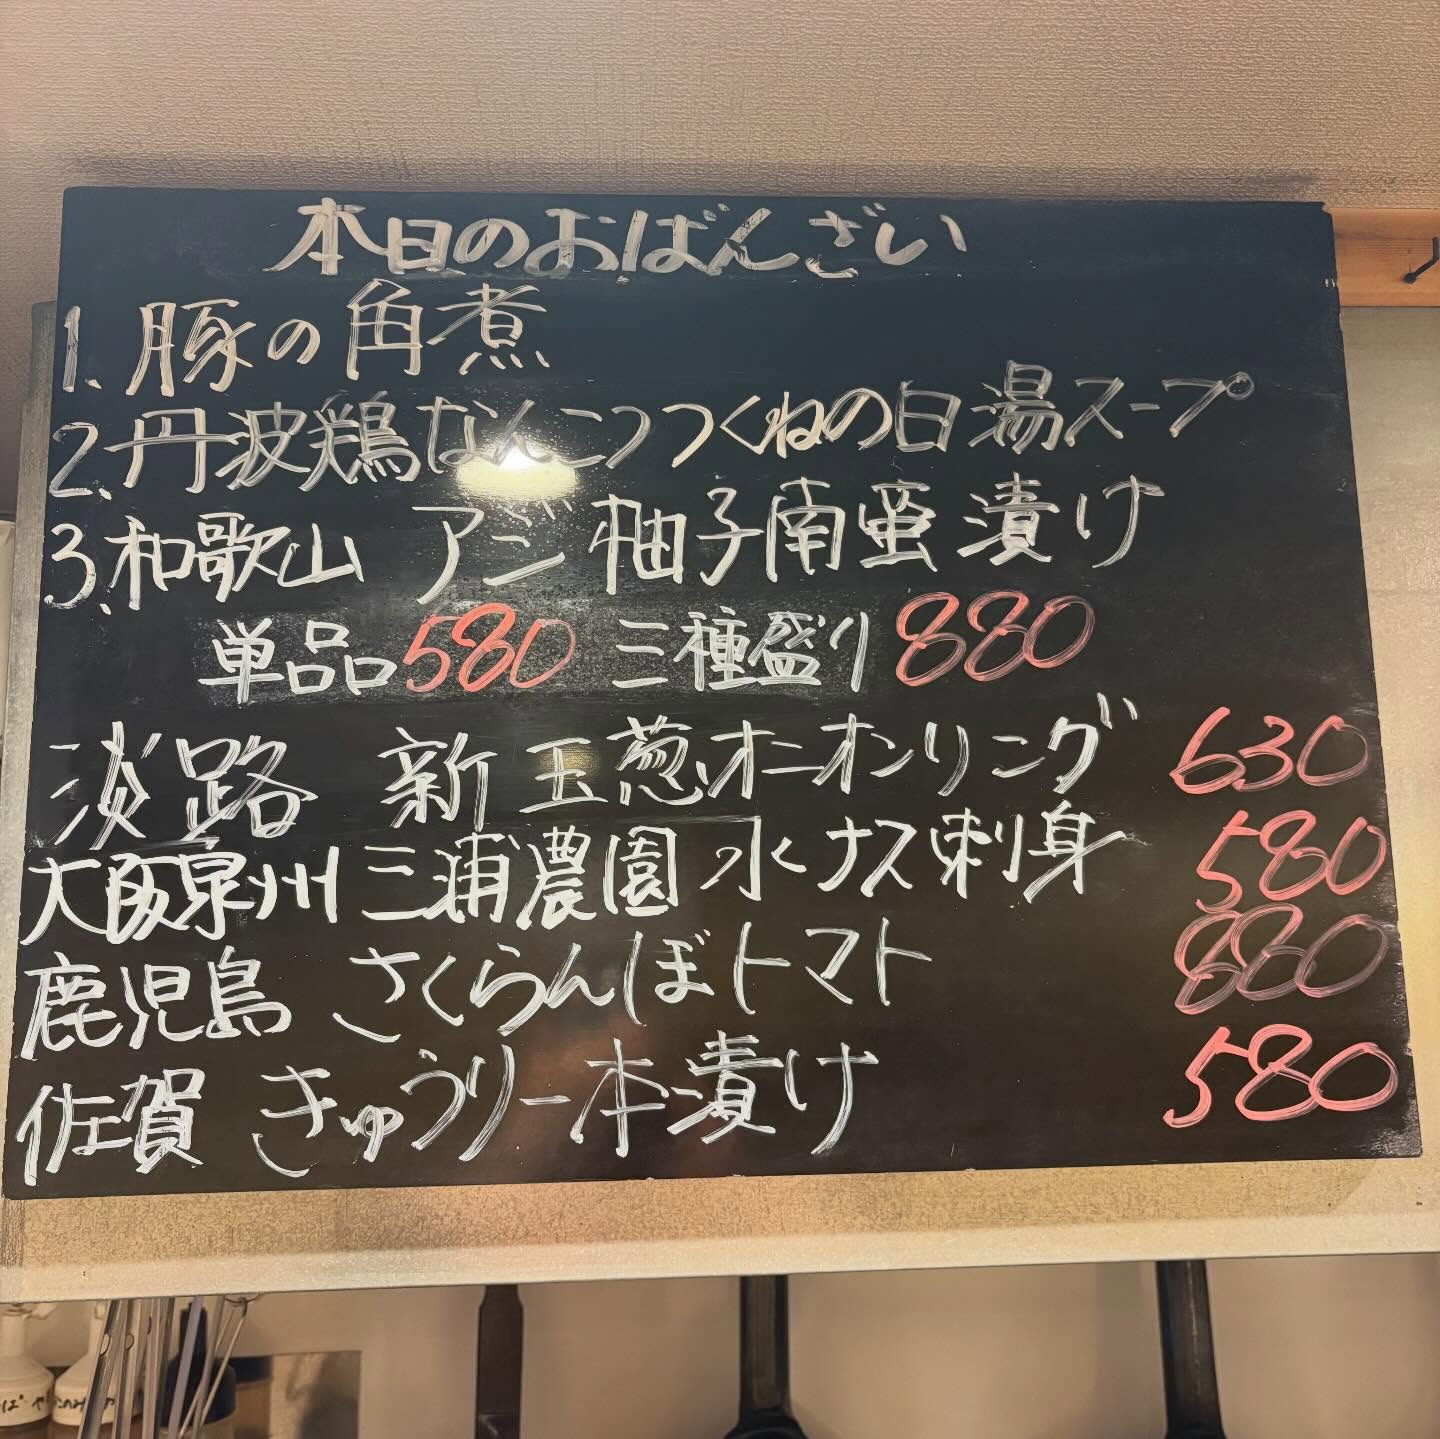 本日のおばんざい
1、豚の角煮
2、丹波鶏なんこつつくねの白湯スープ
3、和歌山 アジ 柚子南蛮漬け
単品580 三種盛り880
淡路 新玉葱オニオンリング 630
大阪泉州 三浦農園 水ナス刺身 580
鹿児島 さくらんぼトマト 880
佐賀 きゅうり一本漬け 580